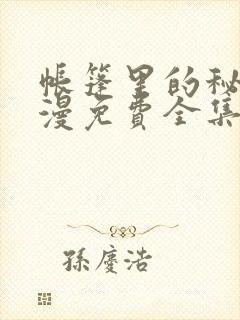 帐篷里的秘
漫免费全集
孫慶浩